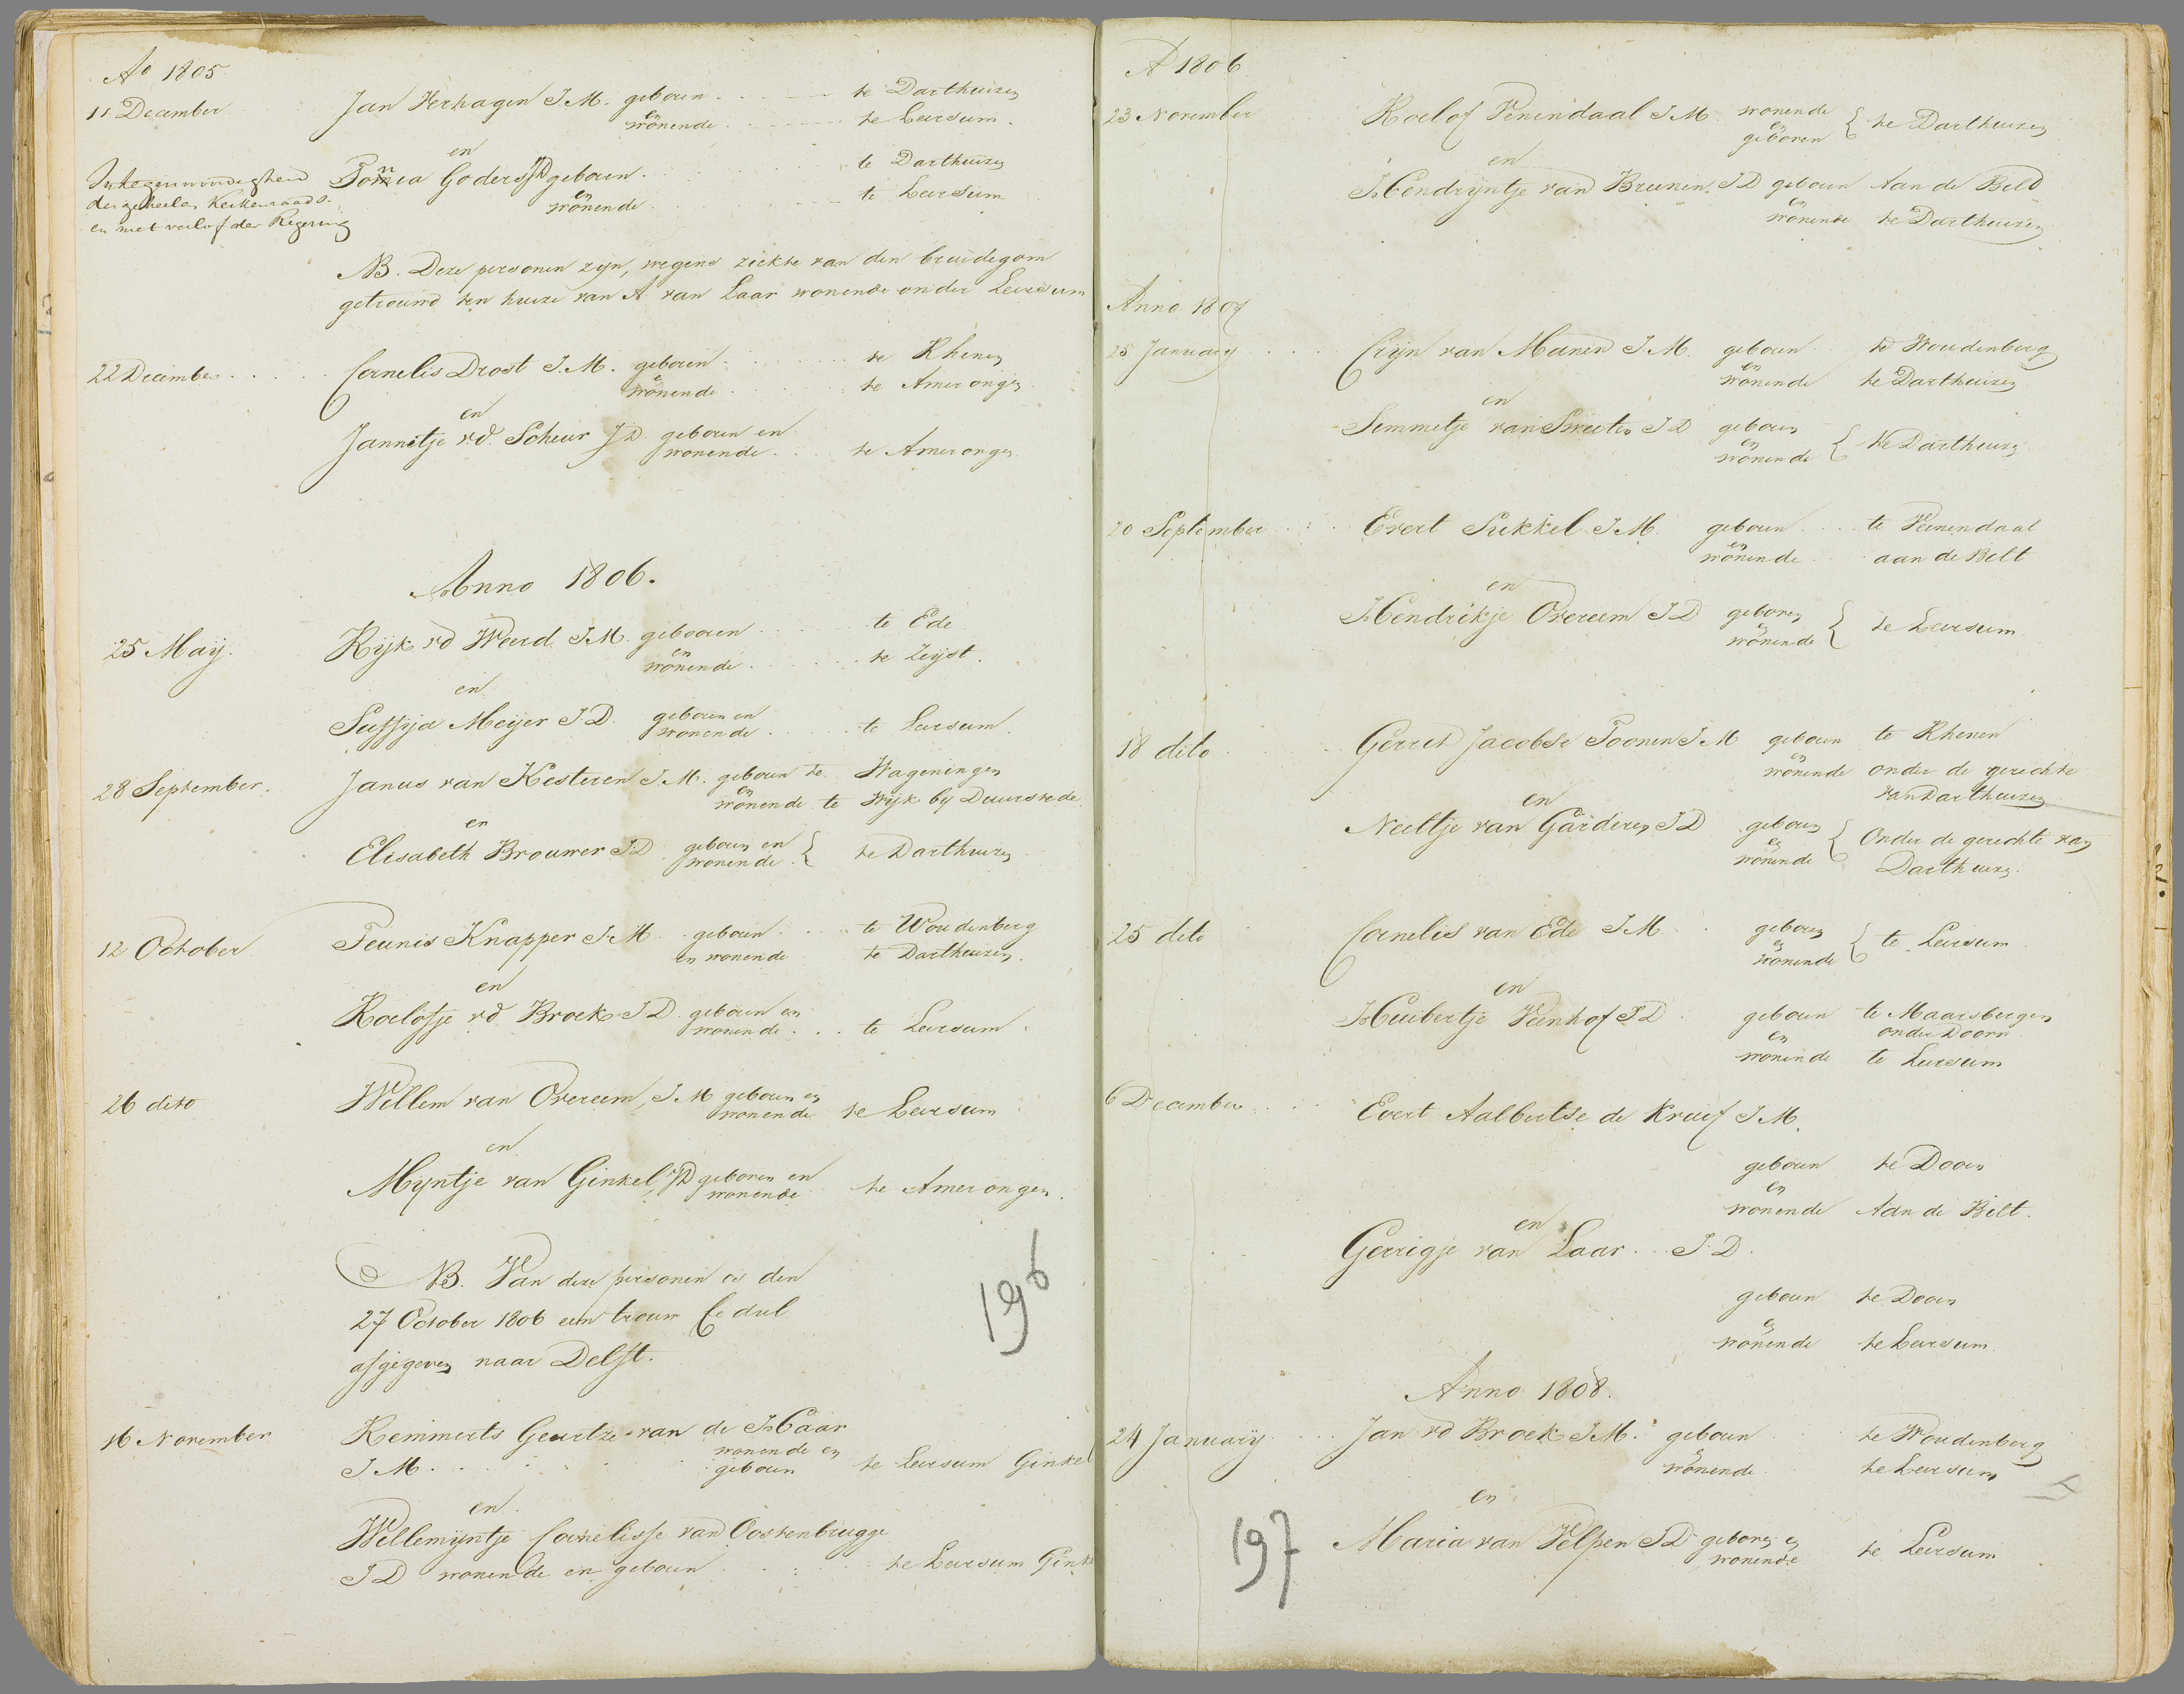 Ao 1805
11 December
Jan Verhagen J.M. geboren - - - te Darthuizen
en
wonende - - - te Leersum.
en
In tegenwoordigheid
der geheelen Kerkenraad
en met verlof der Regering
Tonia Goders JD geboren . . . te Darthuizen
en
wonende . . . te Leersum
NB. Deze personen zijn, wegens ziekte van den bruidegom
getrouwd ten huize van A van Laar wonende onder Leersum
22 December . . . . . Cornelis Drost J.M. geboren . . . te Rhenen
en
wonende . . . te Amerongen
en
Jannetje v.d. Scheur JD. geboren en
wonende . . te Amerongen
Anno 1806.
25 Maij. Rijk vd Weerd J.M. gebooren . . . te Ede
en
wonende . . . te Zeijst.
en
Suffija Meijer J.D. geboren en
wonende . . . te Leersum.
28 September. Janus van Kesteren J.M. geboren te Wageningen
en
wonende te Wijk by Duurstede
en
Elisabeth Brouwer J.D. geboren en
wonende { te Darthuizen
12 October Teunis Knapper J.M. geboren . . . te Woudenberg
en wonende te Darthuizen.
en
Roelofje vd Broek J.D. geboren en
wonende . . . te Leersum.
26 dito Willem van Overeem, J.M geboren en
wonende te Leersum
en
Myntje van Ginkel, JD geboren en
wonende te Amerongen.
NB. Van deze personen is den
27 October 1806 een trouw Cedul
afgegeven naar Delft.
196
16 November Remmerts Geurtze van de Haar
J.M. . . . wonende en
geboren te Leersum Ginkel
en
Willemijntje Cornelisse van Oostenbrugge
J.D. wonende en geboren . . . te Leersum Gink
A 1806
23 November Roelof Venendaal J.M. wonende
en
geboren { te Darthuizen
en
Hendryntje van Breenen, J.D. geboren Aan de Bild
en
wonende te Darthuizen
Anno 1807
25 January . . . Crijn van Manen J.M. geboren te Woudenberg
en
wonende te Darthuizen
en
Semmetje van Sweeten J.D. geboren
en
wonende { te Darthuizen
20 September . : . Evert Sukkel J.M. geboren . . . te Veenendaal
en
wonende . . aan de Bilt
en
Hendrikje Overeem J.D. geboren
en
wonende { te Leersum
18 dito Gerret Jacobse Toonen J.M geboren te Rhenen
en
wonende onder de gerechte
van Darthuizen
en
Neeltje van Garderen J.D geboren
en
wonende { Onder de gerechte van
Darthuizen.
25 dito Cornelis van Ede J.M. . . geboren
en
wonende { te Leersum
en
Huibertje Veenhof J.D. . geboren te Maarsbergen
onder Doorn
en
wonende te Leersum
6 December . . . Evert Aalbertse de Kruif J.M.
geboren te Doorn
en
wonende Aan de Bilt.
en
Gerrigje van Laar . . J.D.
geboren te Doorn
en
wonende te Leersum.
Anno 1808.
24 Januarij . . . Jan vd Broek J.M. geboren . . . te Woudenberg
en
wonende te Leersum
en
197
Maria van Velpen J.D. geboren en
wonende te Leersum